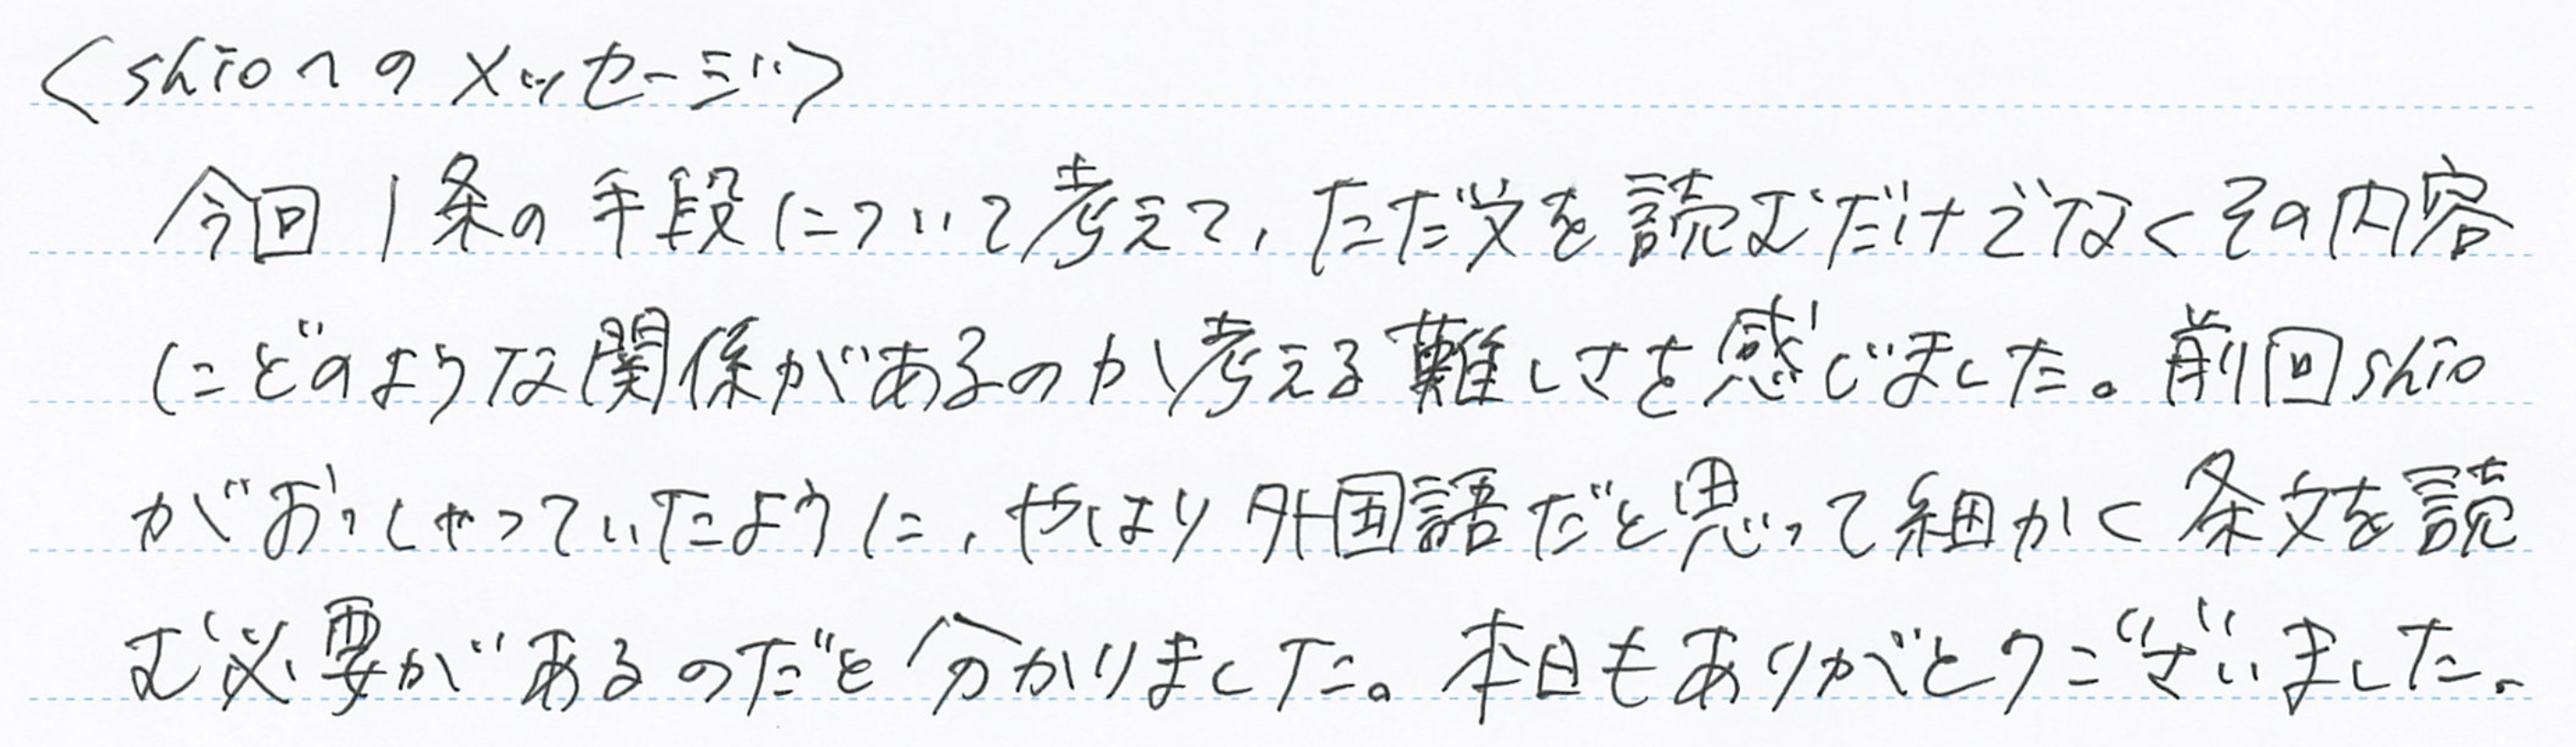 <shioへのメッセージ>
今回1条の手段について考えて,ただ文を読むだけでなくその内容
にどのような関係があるのか考える難しさを感じました。前回shio
がおっしゃっていたように,やはり外国語だと思って細かく条文を読
む必要があるのだと分かりました。本日もありがとうございました。